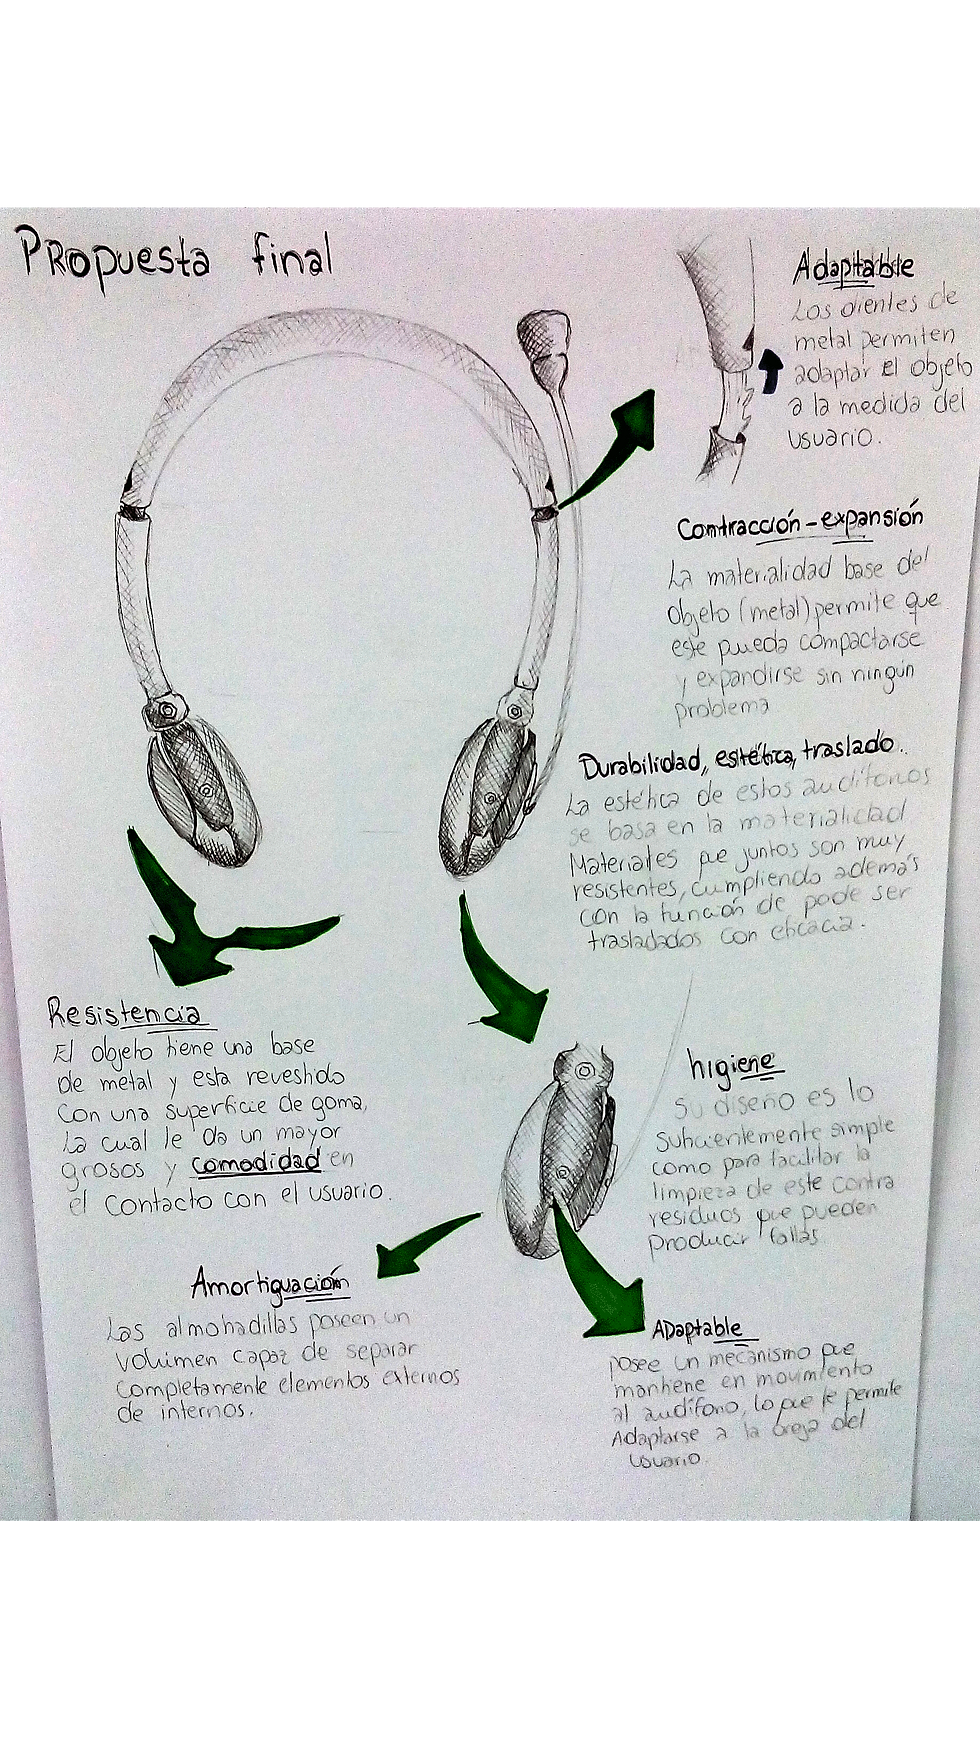 Propuesta final
Adaptable
Los dientes de
metal permiten
adaptar el objeto
a la medida del
usuario.
Contracción-expansión
La materialidad base del
objeto (metal) permite que
este pueda compactarse
y expandirse sin ningún
problema
Durabilidad, estética, traslado.
La estética de estos audífonos
se basa en la materialidad.
Materiales que juntos son muy
resistentes, cumpliendo además
con la función de pode ser
trasladados con eficacia.
Resistencia
El objeto tiene una base
de metal y esta revestido
con una superficie de goma,
la cual le da un mayor
grosos y comodidad en
el contacto con el usuario.
higiene
Su diseño es lo
suficientemente simple
como para facilitar la
limpieza de este contra
residuos que pueden
producir fallas
Amortiguación
Las almohadillas poseen un
volumen capaz de separar
completamente elementos externos
de internos.
ADaptable
posee un mecanismo que
mantiene en movimiento
al audífono, lo que le permite
Adaptarse a la oreja del
usuario.